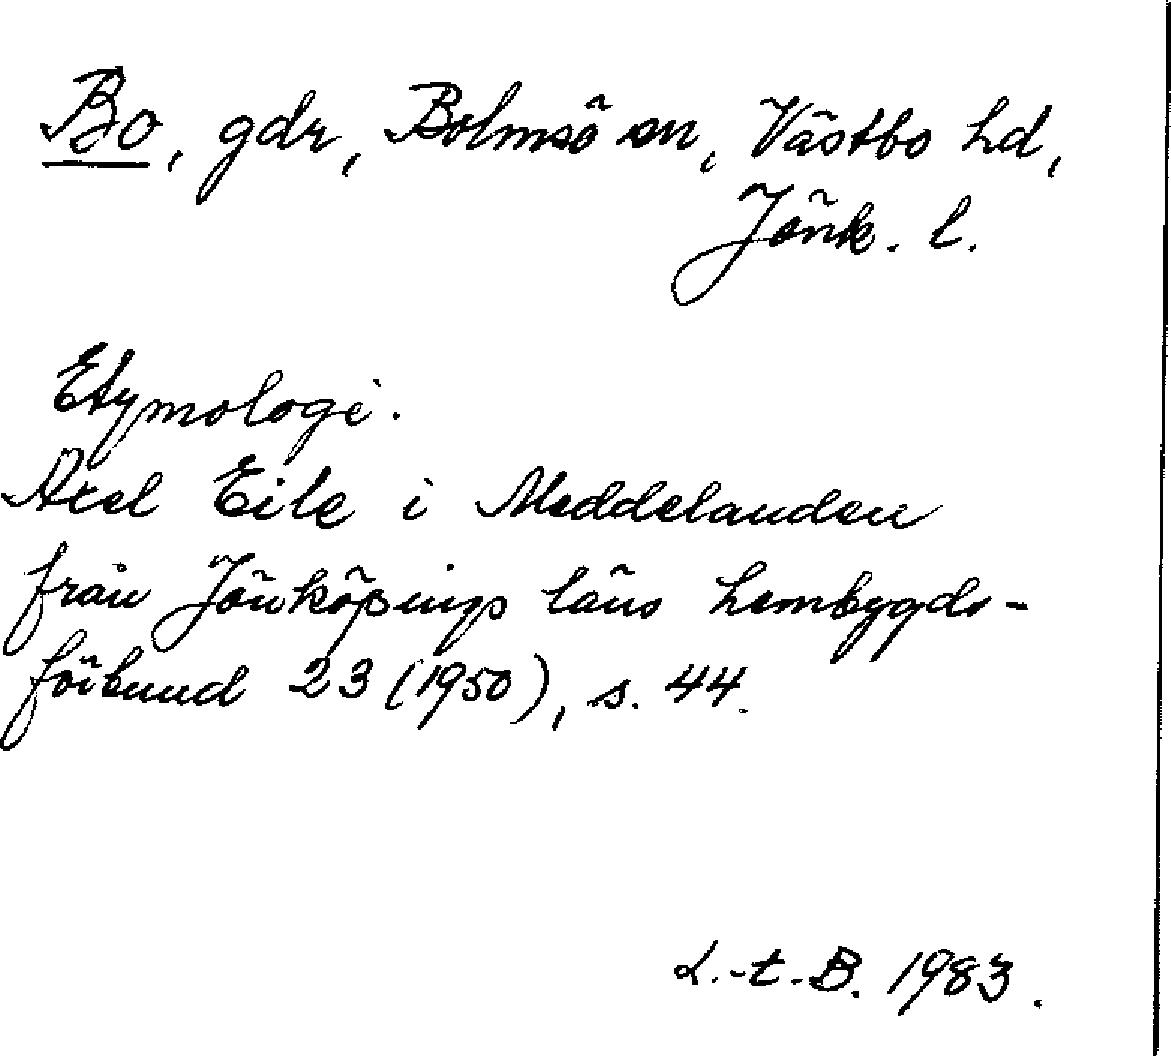 Bo, gdr, Bolmsö sn, Västbo hd,
Jönk. l.
Etymologi.
Axel Eile i Meddelanden
från Jönköpings läns hembygds-
förbund 23 (1950), s. 44.
L.-t.-B. 1983.